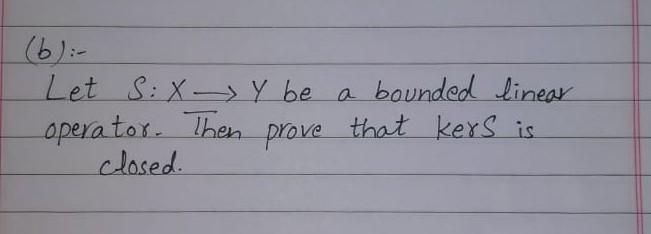 (b):-
Let S: X ⟶ Y be a bounded linear
operator. Then prove that kerS is
closed.